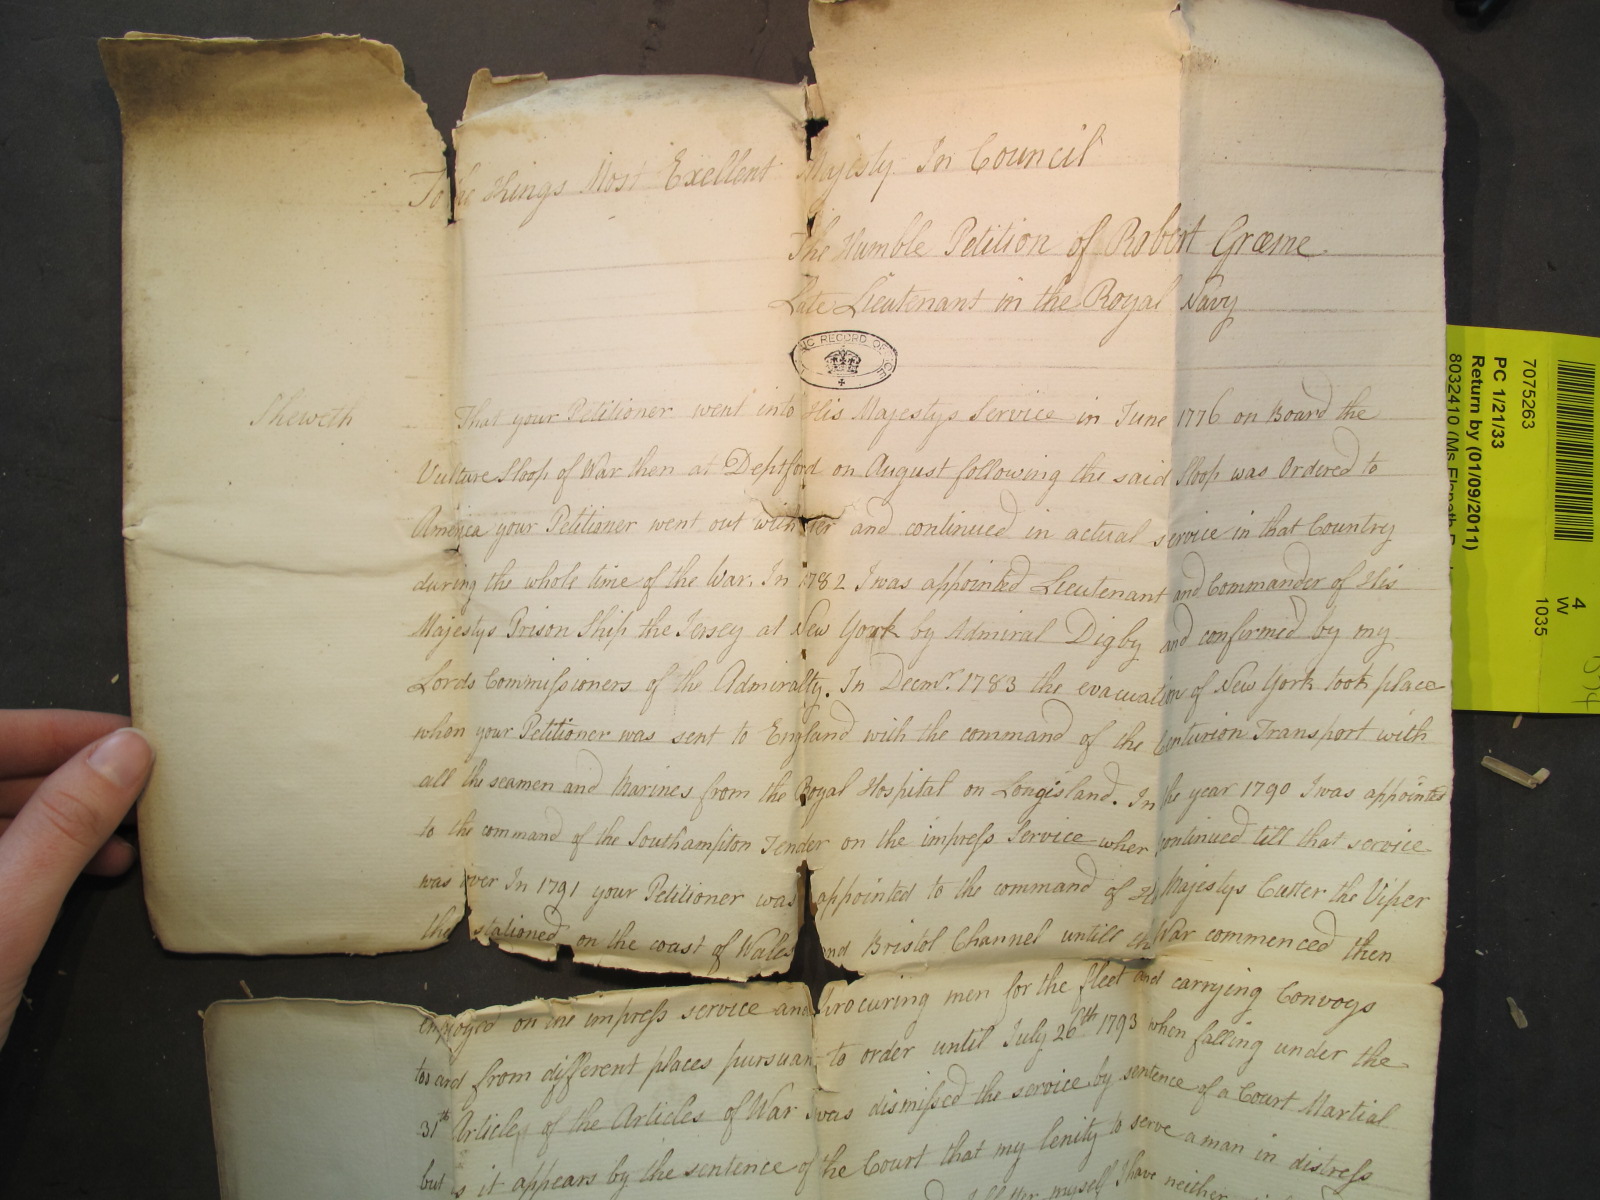 To the Kings Most Exellent Majesty In Council
The Humble Petition of Robert Græme
Late Lieutenant in the Royal Navy
PUBLIC RECORD OFFICE
Sheweth That your Petitioner went into His Majestys Service in June 1776 on Board the
Vulture Sloop of War then at Deptford on August following the said Sloop was Ordered to
America your Petitioner went out with her and continued in actual service in that Country
during the whole time of the War. In 1782 I was appointed Lieutenant and Commander of His
Majestys Prison Ship the Jersey at New York by Admiral Digby and confirmed by my
Lords Commissioners of the Admiralty. In Decmr. 1783 the evacuation of New York took place
when your Petitioner was sent to England with the command of the Centurion Transport with
all the seamen and Marines from the Royal Hospital on Longisland. In the year 1790 I was appointed
to the command of the Southampton Tender on the impress Service wher continued till that service
was over In 1791 your Petitioner was appointed to the command of His Majestys Cutter the Viper
the stationed on the coast of Wales and Bristol Channel untill the War commenced then
employed on the impress service and procuring men for the fleet and carrying Convoys
to and from different places pursuant to order until July 26th 1793 when falling under the
31th Article of the Articles of War I was dismissed the service by sentence of a Court Martial
but as it appears by the sentence of the Court that my lenity to serve a man in distress
myself I have neither
7075263
PC 1/21/33
Return by (01/09/2011)
8032410 (Ms
4
W
1035